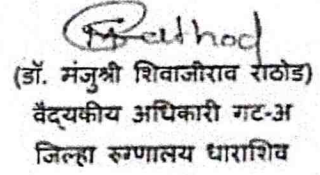 Rathod
(डॉ. मंजुश्री शिवाजीराव राठोड)
वैद्यकीय अधिकारी गट-अ
जिल्हा रुग्णालय धाराशिव